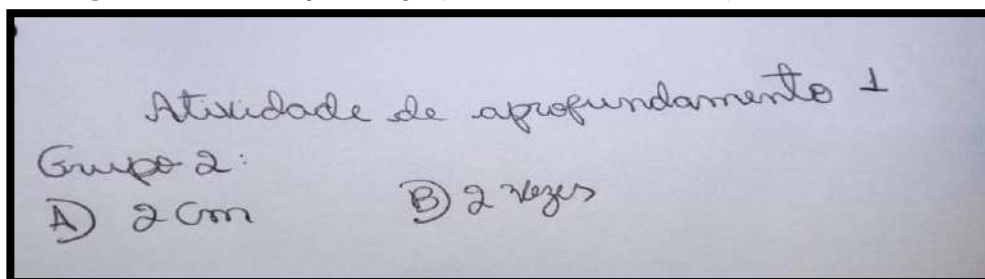 Atividade de aprofundamento 1
Grupo 2:
A) 2 cm B) 2 vezes